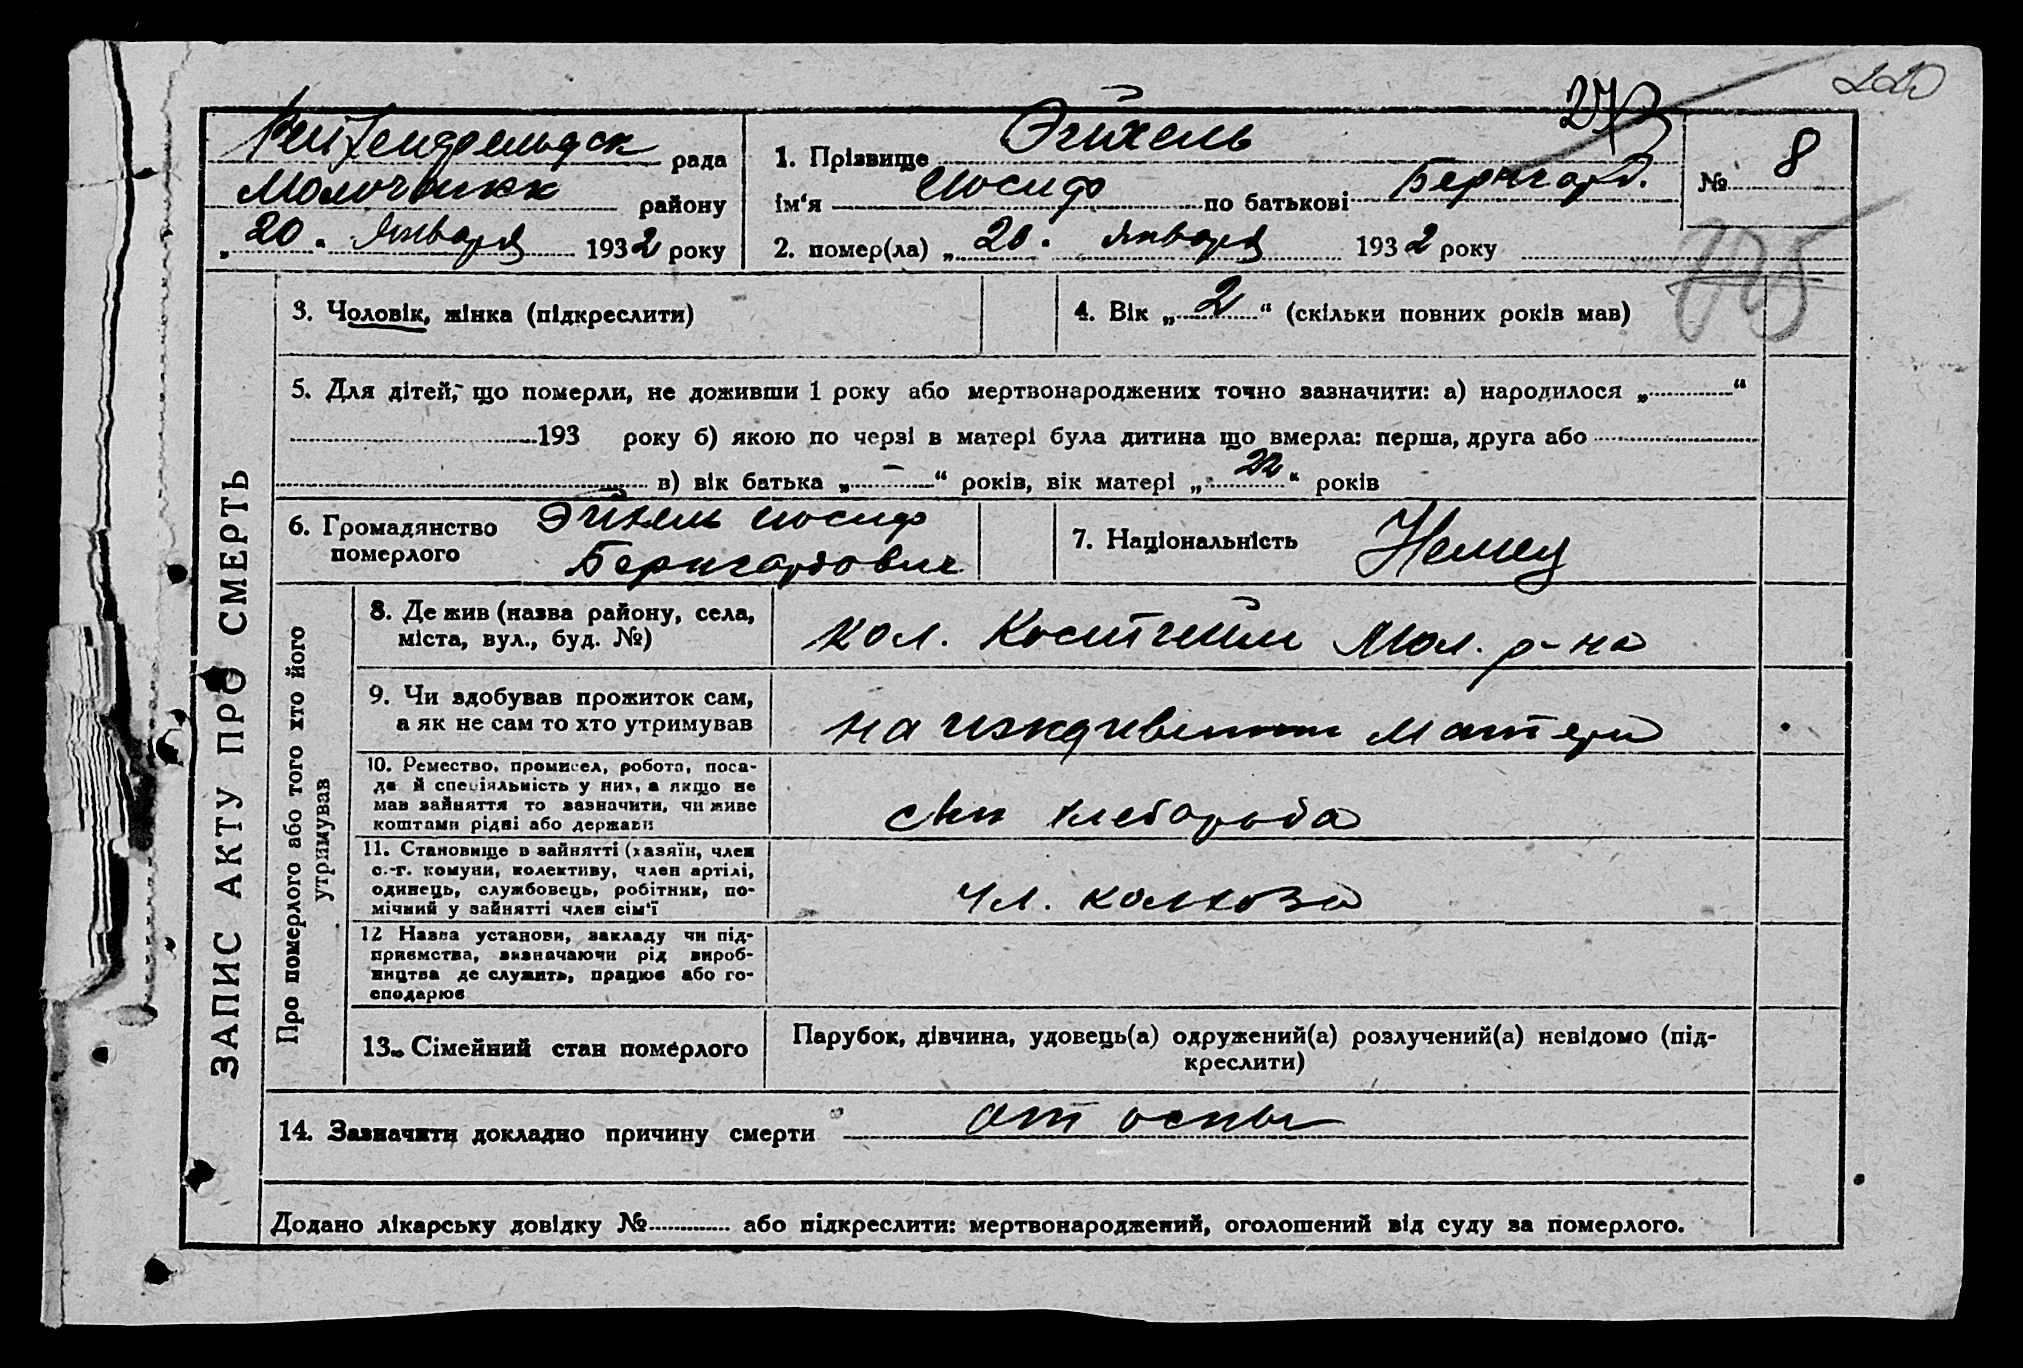 220
273
Рейхенфельдск рада
Молочанск району
„ 20 " января 1932 року
1. Прізвище Эйхель
ім‘я Иосиф по батькові Бернгард.
2. помер(ла) „ 20 " января 1932 року
№ 8
ЗАПИС АКТУ ПРО СМЕРТЬ
3. Чоловік, жінка (підкреслити)
4. Вік „ 2 “ (скільки повних років мав)
5. Для дітей, що померли, не доживши 1 року або мертвонароджених точно зазначити: а) народилося „ “
193 року б) якою по черзі в матері була дитина що вмерла: перша, друга або
в) вік батька „ – “ років, вік матері „ 22 “ років
6. Громадянство померлого
Эйхель Иосиф
Бернгардович
7. Національність Немец
Про померлого або того хто його
утримував
8. Де жив (назва району, села,
міста, вул., буд. №)
кол. Костгейм Мол. р-на
9. Чи здобував прожиток сам,
а як не сам то хто утримував
на иждивении матери
10. Ремество, промисел, робота, поса-
да й спеціяльність у них, а якщо не
мав зайняття то зазначити, чи живе
коштами рідні або держави
сын хлебороба
11. Становище в зайнятті (хазяїн, член
с.-г. комуни, колективу, член артілі,
одинець, службовець, робітник, по-
мічний у зайнятті член сім‘ї
чл. колхоза
12 Назва установи, закладу чи під-
приємства, визначаючи рід вироб-
ництва де служить, працює або го-
сподарює
13. Сімейний стан померлого
Парубок, дівчина, удовець(а) одружений(а) розлучений(а) невідомо (під-
креслити)
14. Зазначити докладно причину смерти от оспы
Додано лікарську довідку № або підкреслити: мертвонароджений, оголошений від суду за померлого.